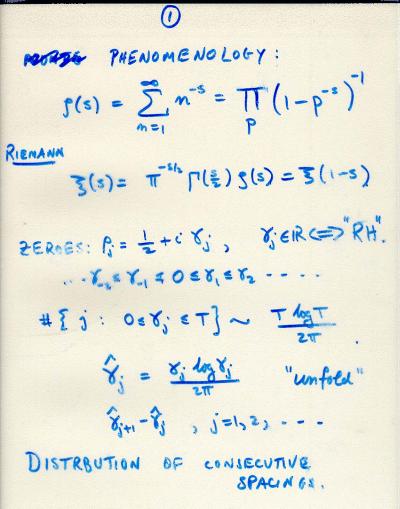 ①
PHENOMENOLOGY:
ζ(s) = ∑_{n=1}^{∞} n^{-s} = ∏_p (1-p^{-s})^{-1}
RIEMANN
ξ(s) = π^{-s/2} Γ(s/2) ζ(s) = ξ(1-s)
ZEROES: ρ_j = 1/2 + i γ_j , γ_j ∈ ℝ ⟺ "RH".
... γ_{-2} ≤ γ_{-1} ≤ 0 ≤ γ_1 ≤ γ_2 ....
#{j : 0 ≤ γ_j ≤ T} ~ T log T / 2π .
γ̂_j = γ_j log γ_j / 2π "unfold"
γ̂_{j+1} - γ̂_j , j = 1, 2, ....
DISTRBUTION OF CONSECUTIVE
SPACINGS.